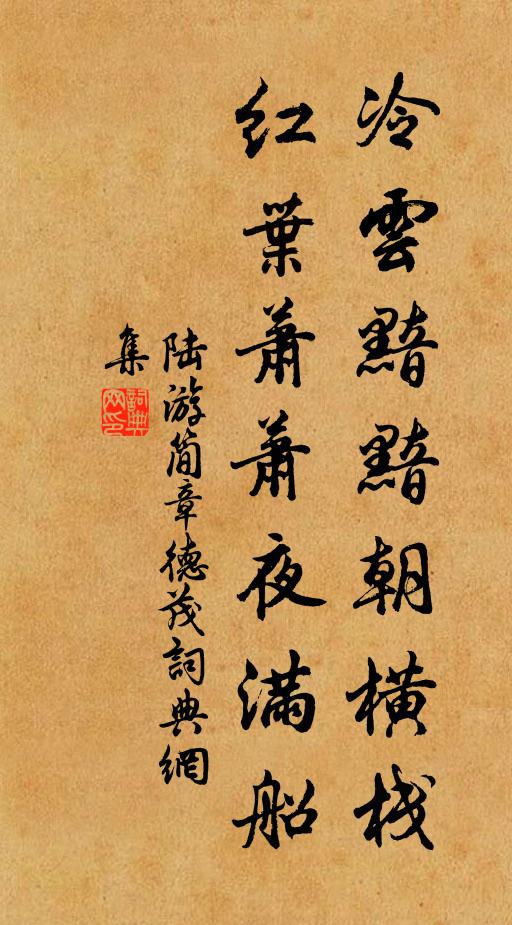 冷雲黯黯朝橫棧
紅葉蕭蕭夜滿船
陸游簡章德茂詞典網
集
詞典網印